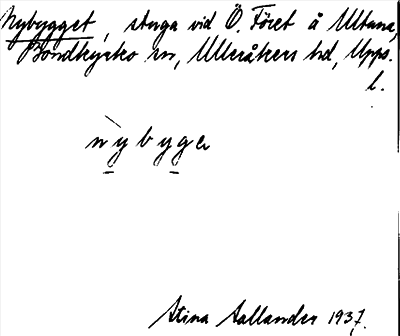 Nybygget, stuga vid Ö. Föret å Ultuna,
Bondkyrko sn, Ulleråkers hd, Upps.
l.
nỳbyge
Stina Aallander 1937.